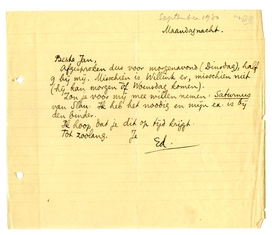 September 1930
Maandagnacht.
Beste Jan,
Afgesproken dus voor morgenavond (Dinsdag), half
9 bij mij. Misschien is Willink er, misschien niet
(hij kan morgen of Woensdag komen).
Zou je voor mij mee willen nemen: Saturnus
van Slau. Ik heb het noodig en mijn ex. is bij
den binder.
Ik hoop dat je dit op tijd krijgt.
Tot zoolang. Je
Ed.